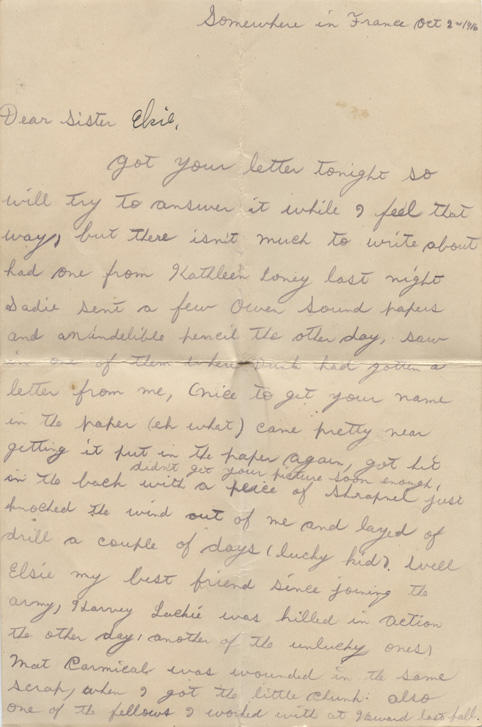 Somewhere in France Oct 2nd 1916
Dear Sister Elsie,
Got your letter tonight so
will try to answer it while I feel that
way, but there isn't much to write about
had one from Kathleen Loney last night
Sadie sent a few Owen Sound papers
and an indelible pencil the other day, saw
in one of them where had gotten a
letter from me, (nice to get your name
in the paper (eh what) came pretty near
getting it put in the paper again, got hit
didn't get your picture soon enough,
in the back with a peice of Shrapnel just
knocked the wind out of me and layed of
drill a couple of days (lucky kid). Well
Elsie my best friend since joining the
army, Harvey Luckie was killed in action
the other day, another of the unlucky ones,
Mat Carmical was wounded in the same
scrap, when I got the little chunk. also
one of the fellows I worked with at last fall.